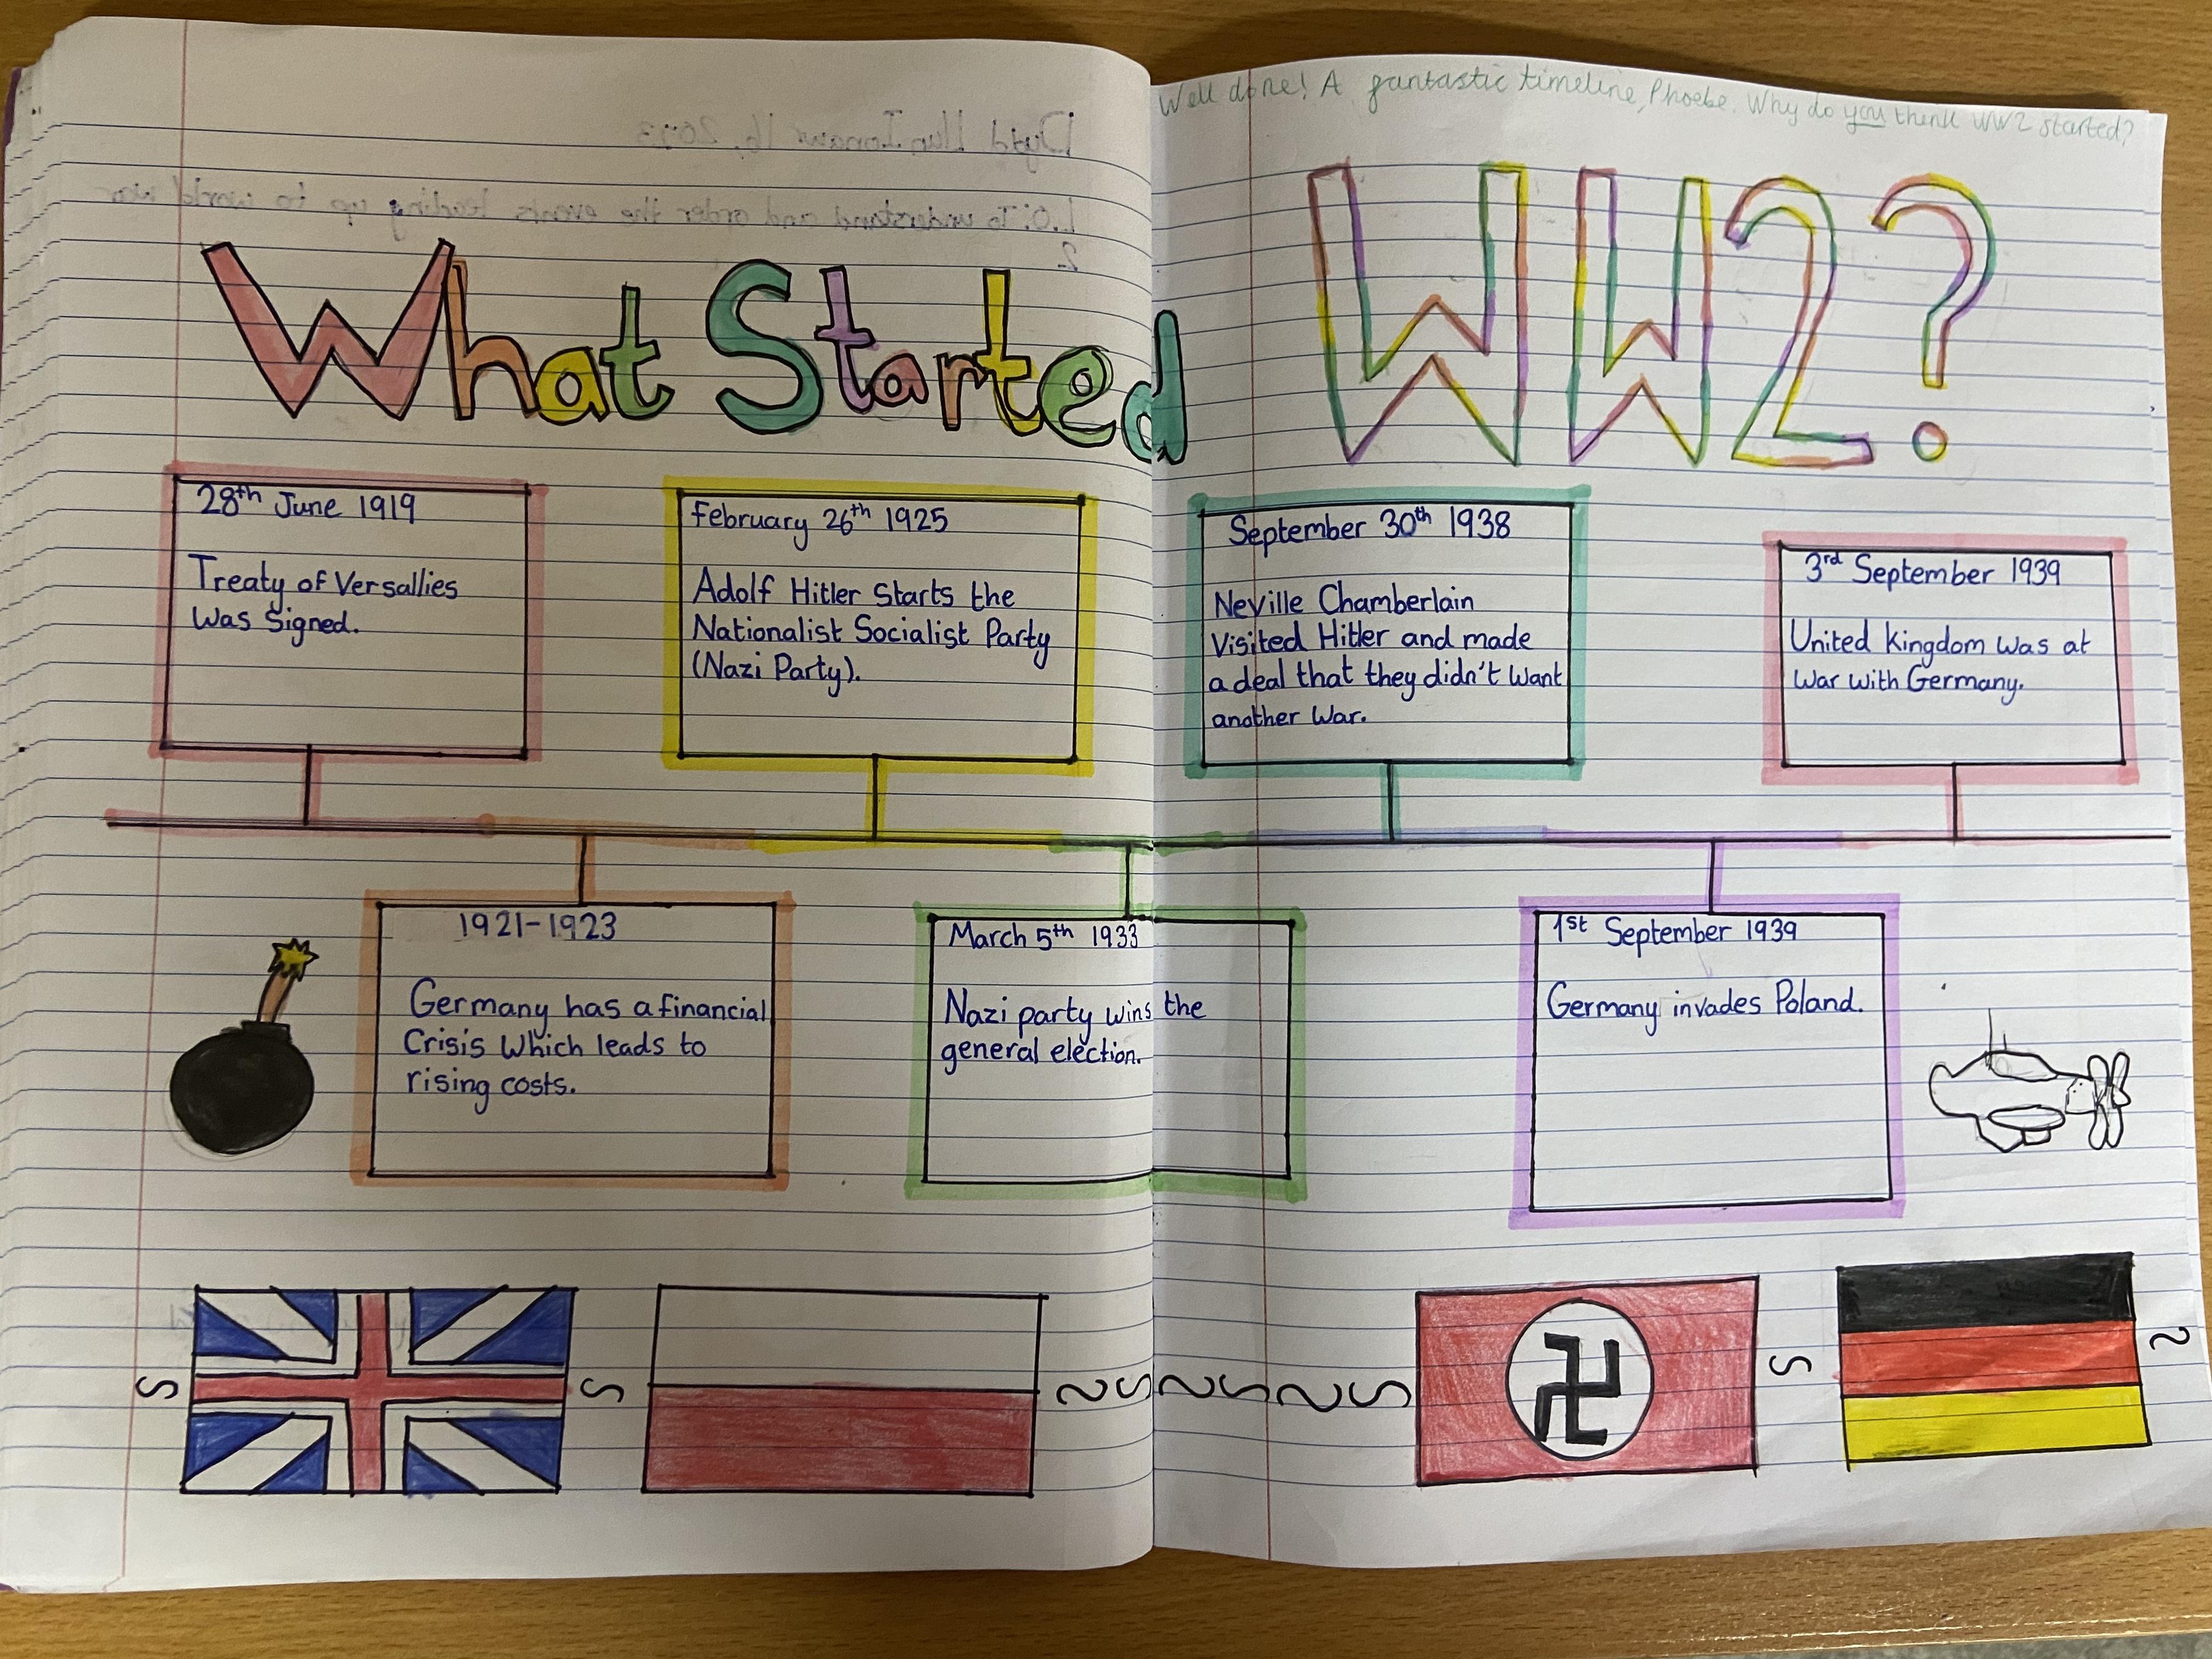 Well done! A fantastic timeline, Phoebe. Why do you think WW2 started?
What Started WW2?
28th June 1919
Treaty of Versallies
Was Signed.
February 26th 1925
Adolf Hitler Starts the
Nationalist Socialist Party
(Nazi Party).
September 30th 1938
Neville Chamberlain
Visited Hitler and made
a deal that they didn't want
another War.
3rd September 1939
United Kingdom Was at
War with Germany.
1921-1923
Germany has a financial
Crisis Which leads to
rising costs.
March 5th 1933
Nazi party wins the
general election.
1st September 1939
Germany invades Poland.